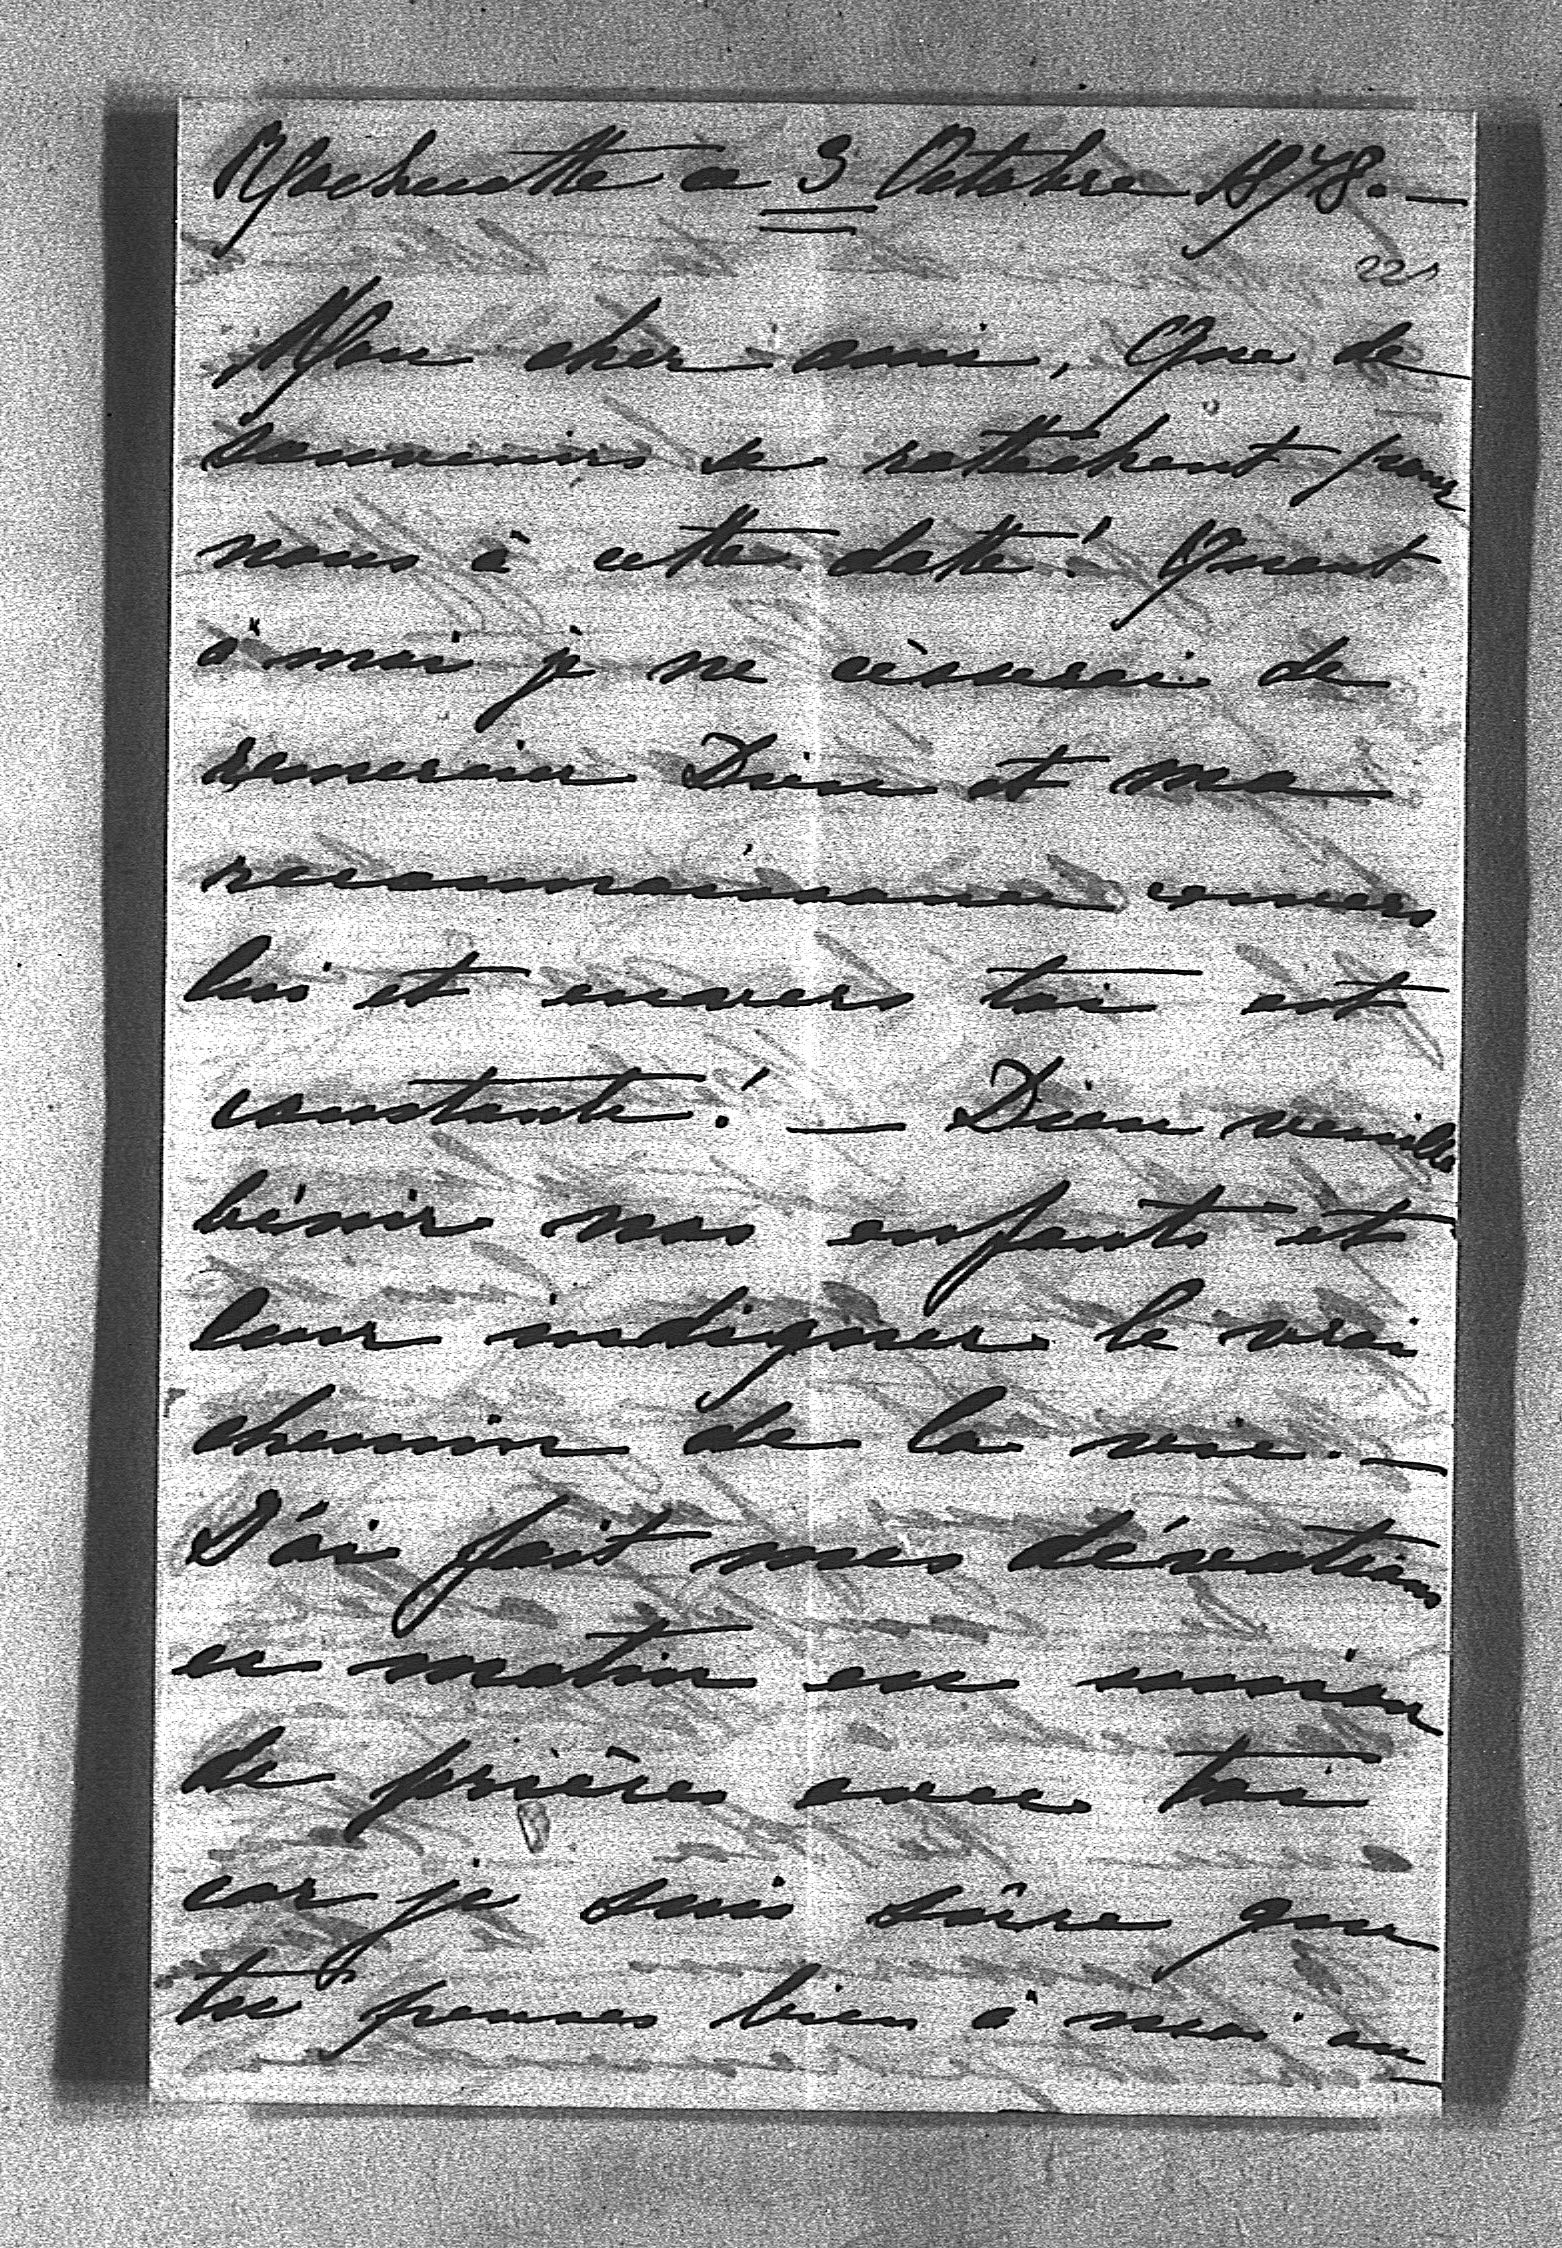 Machuotte ce 3 Octobre 1878. —
22
Mon cher ami, Que de
souvenirs se rattachent pour
nous à cette datte! Quant
à moi je ne cèsserai de
remercier Dieu et ma
reconnaissance envers
lui et envers toi est
constante! — Dieu veuille
bénir nos enfants et
leur indiquer le vrai
chemin de la vie. —
J'ai fait mes dévotions
ce matin en union
de prières avec toi
car je suis sûre que
tu penses bien à moi en